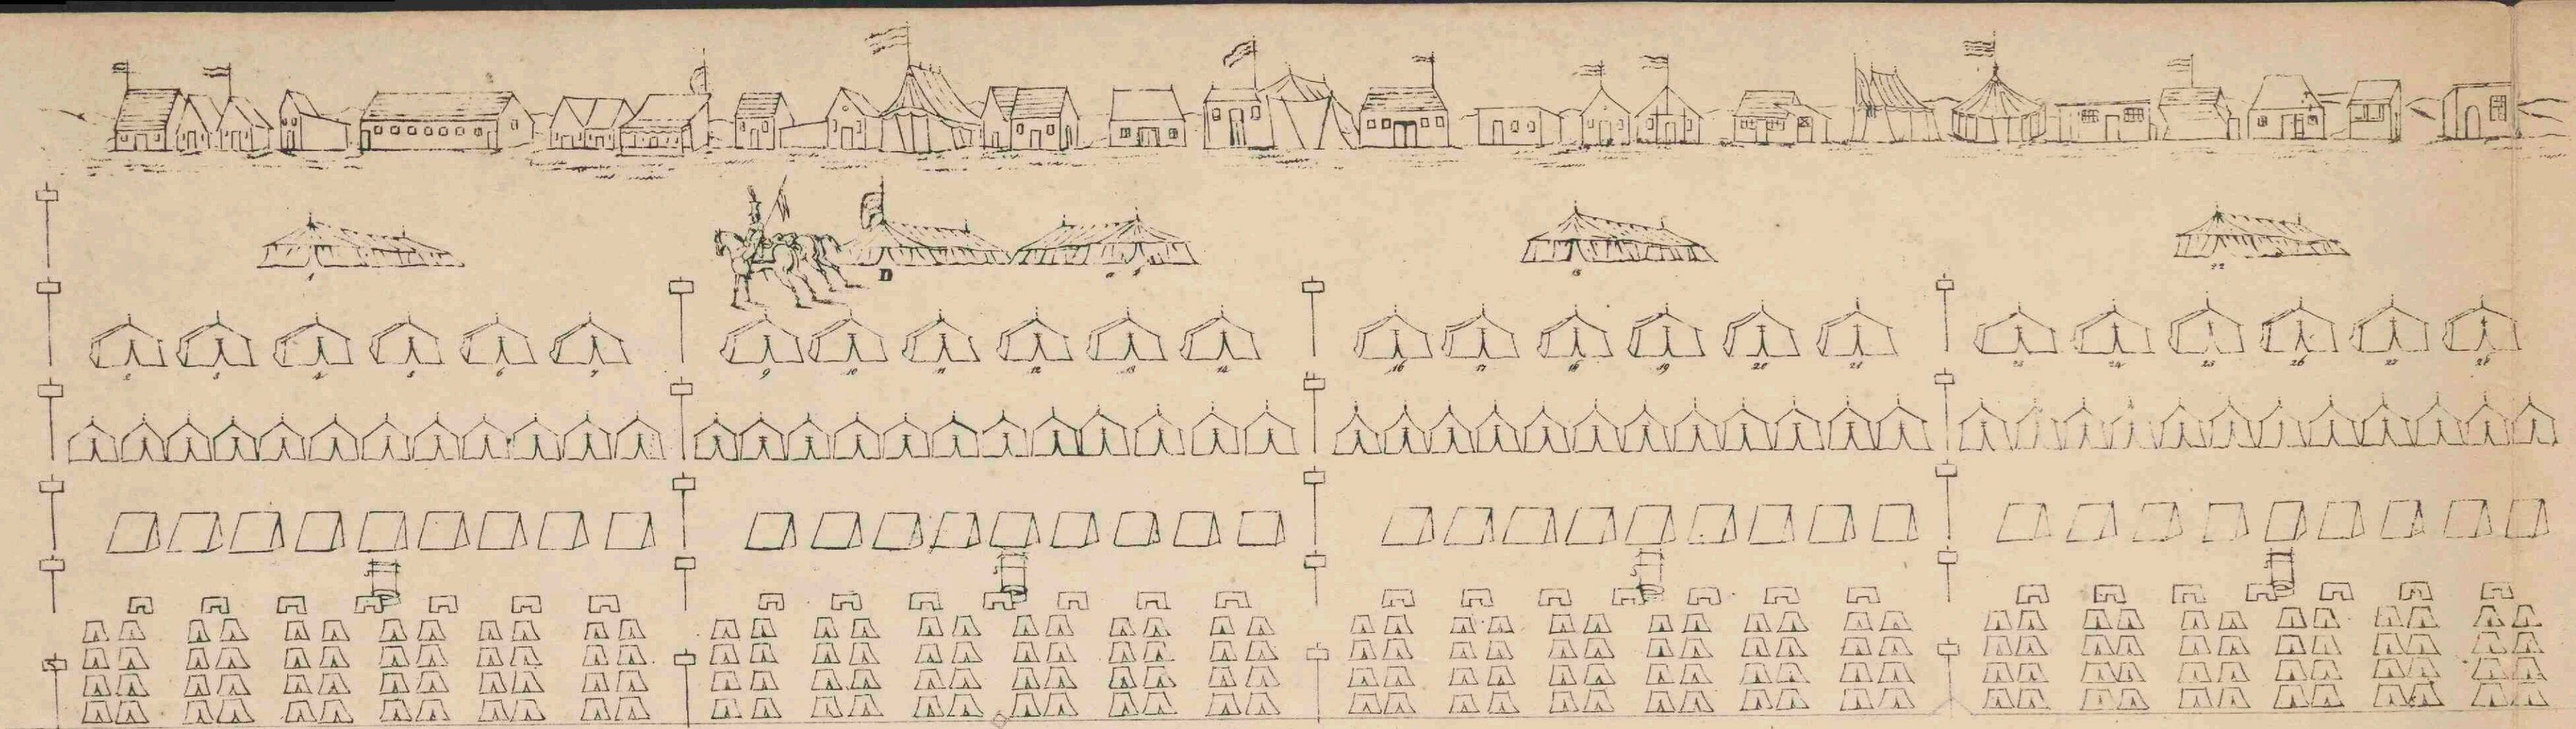 1 D 8 15 22
2 3 4 5 6 7 9 10 11 12 13 14 16 17 18 19 20 21 23 24 25 26 27 28